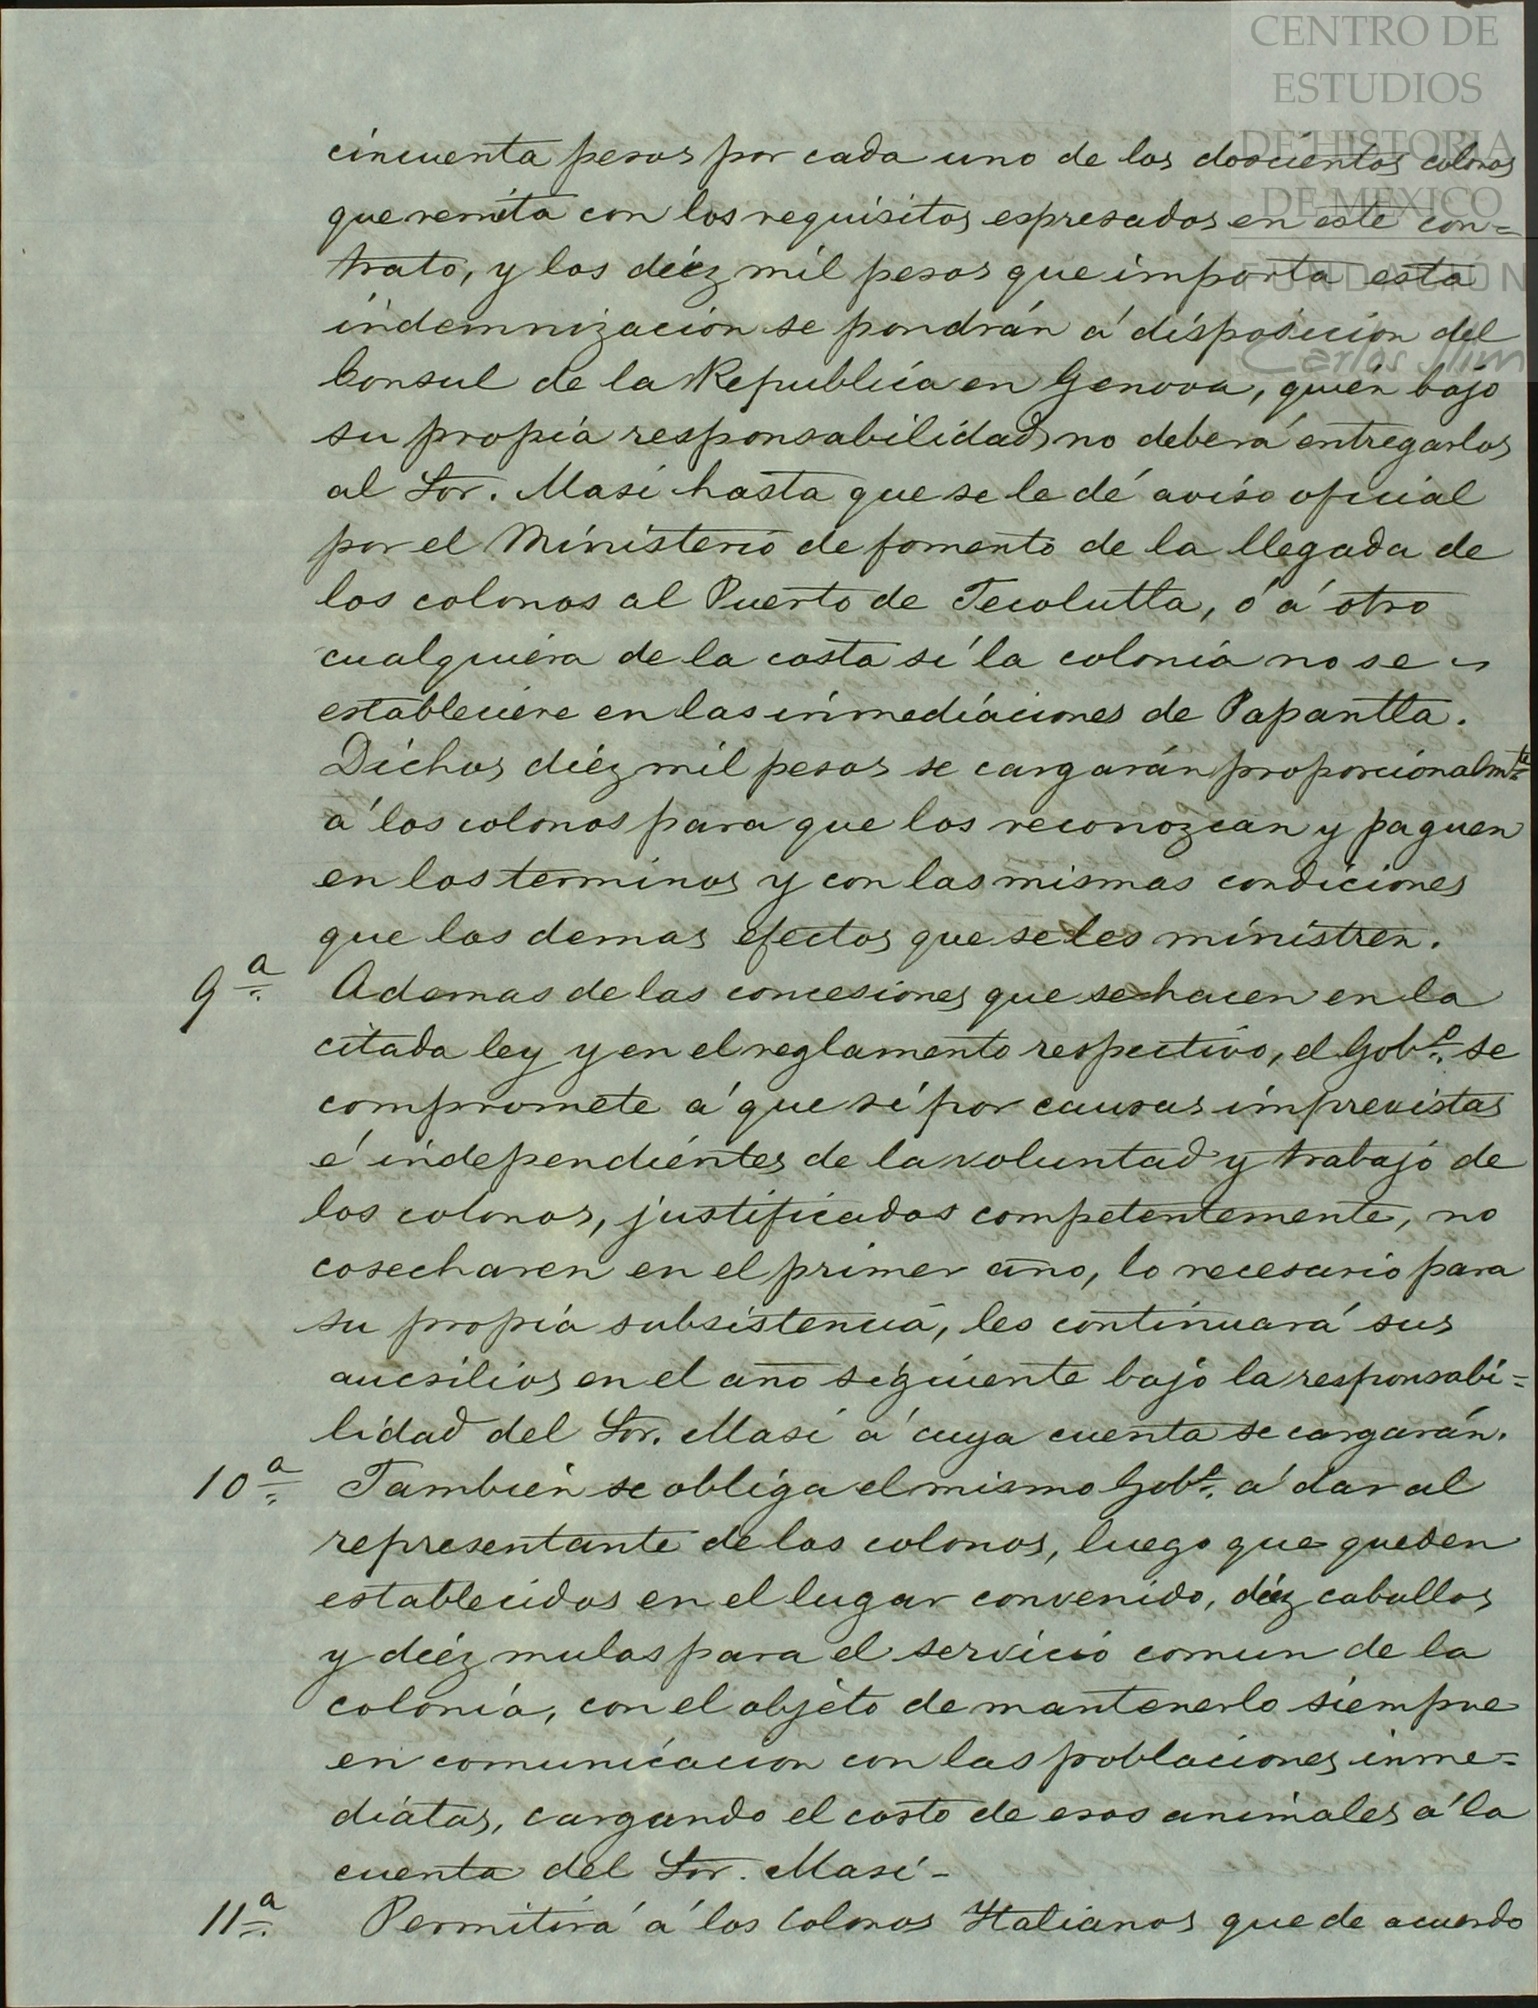 CENTRO DE
ESTUDIOS
DE HISTORIA
DE MEXICO
FUNDACION
Carlos Slim
cincuenta pesos por cada uno de los doscientos colonos
que remita con los requisitos espresados en este con=
trato, y los diez mil pesos que importa esta
indemnización se pondrán á disposicion del
Consul de la Republica en Genova, quién bajo
su propia responsabilidad no deberá entregarlos
al Sor. Masi hasta que se le dé aviso oficial
por el Ministerio de fomento de la llegada de
los colonos al Puerto de Tecolutla, ó á otro
cualquiera de la costa si la colonia no se
estableciere en las inmediaciones de Papantla.
Dichos diez mil pesos se cargarán proporcionalmte
á los colonos para que los reconozcan y paguen
en los terminos y con las mismas condiciones
que los demas efectos que se les ministren.
9a. Ademas de las concesiones que se hacen en la
citada ley y en el reglamento respectivo, el Gobo. se
compromete á que si por causas imprevistas
é independientes de la voluntad y trabajo de
los colonos, justificados competentemente, no
cosecharen en el primer año, lo necesario para
su propia subsistencia, les continuará sus
aucsilios en el año siguiente bajo la responsabi=
lidad del Sor. Masi á cuya cuenta se cargarán.
10a. Tambien se obliga el mismo Gobo. á dar al
representante de los colonos, luego que queden
establecidos en el lugar convenido, diez caballos
y diez mulas para el servicio comun de la
colonia, con el objeto de mantenerlo siempre
en comunicacion con las poblaciones inme=
diatas, cargando el costo de esos animales á la
cuenta del Sor. Masi-
11a. Permitirá á los Colonos Italianos que de acuerdo